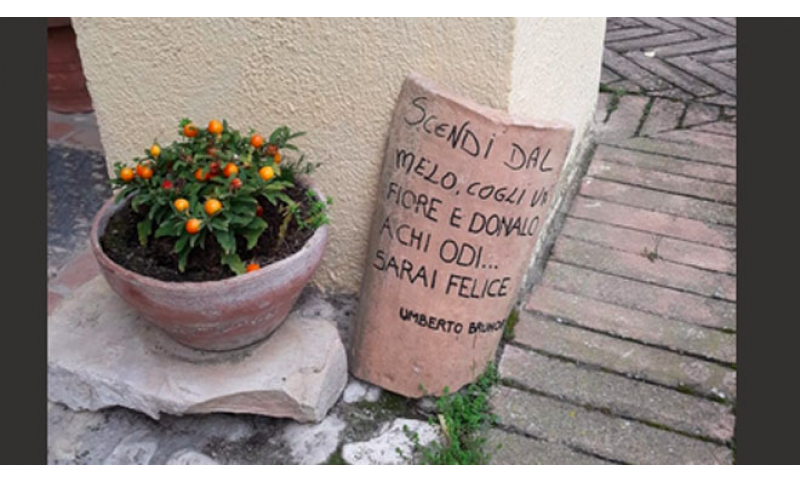 SCENDI DAL
MELO, COGLI UN
FIORE E DONALO
A CHI ODI...
SARAI FELICE
UMBERTO